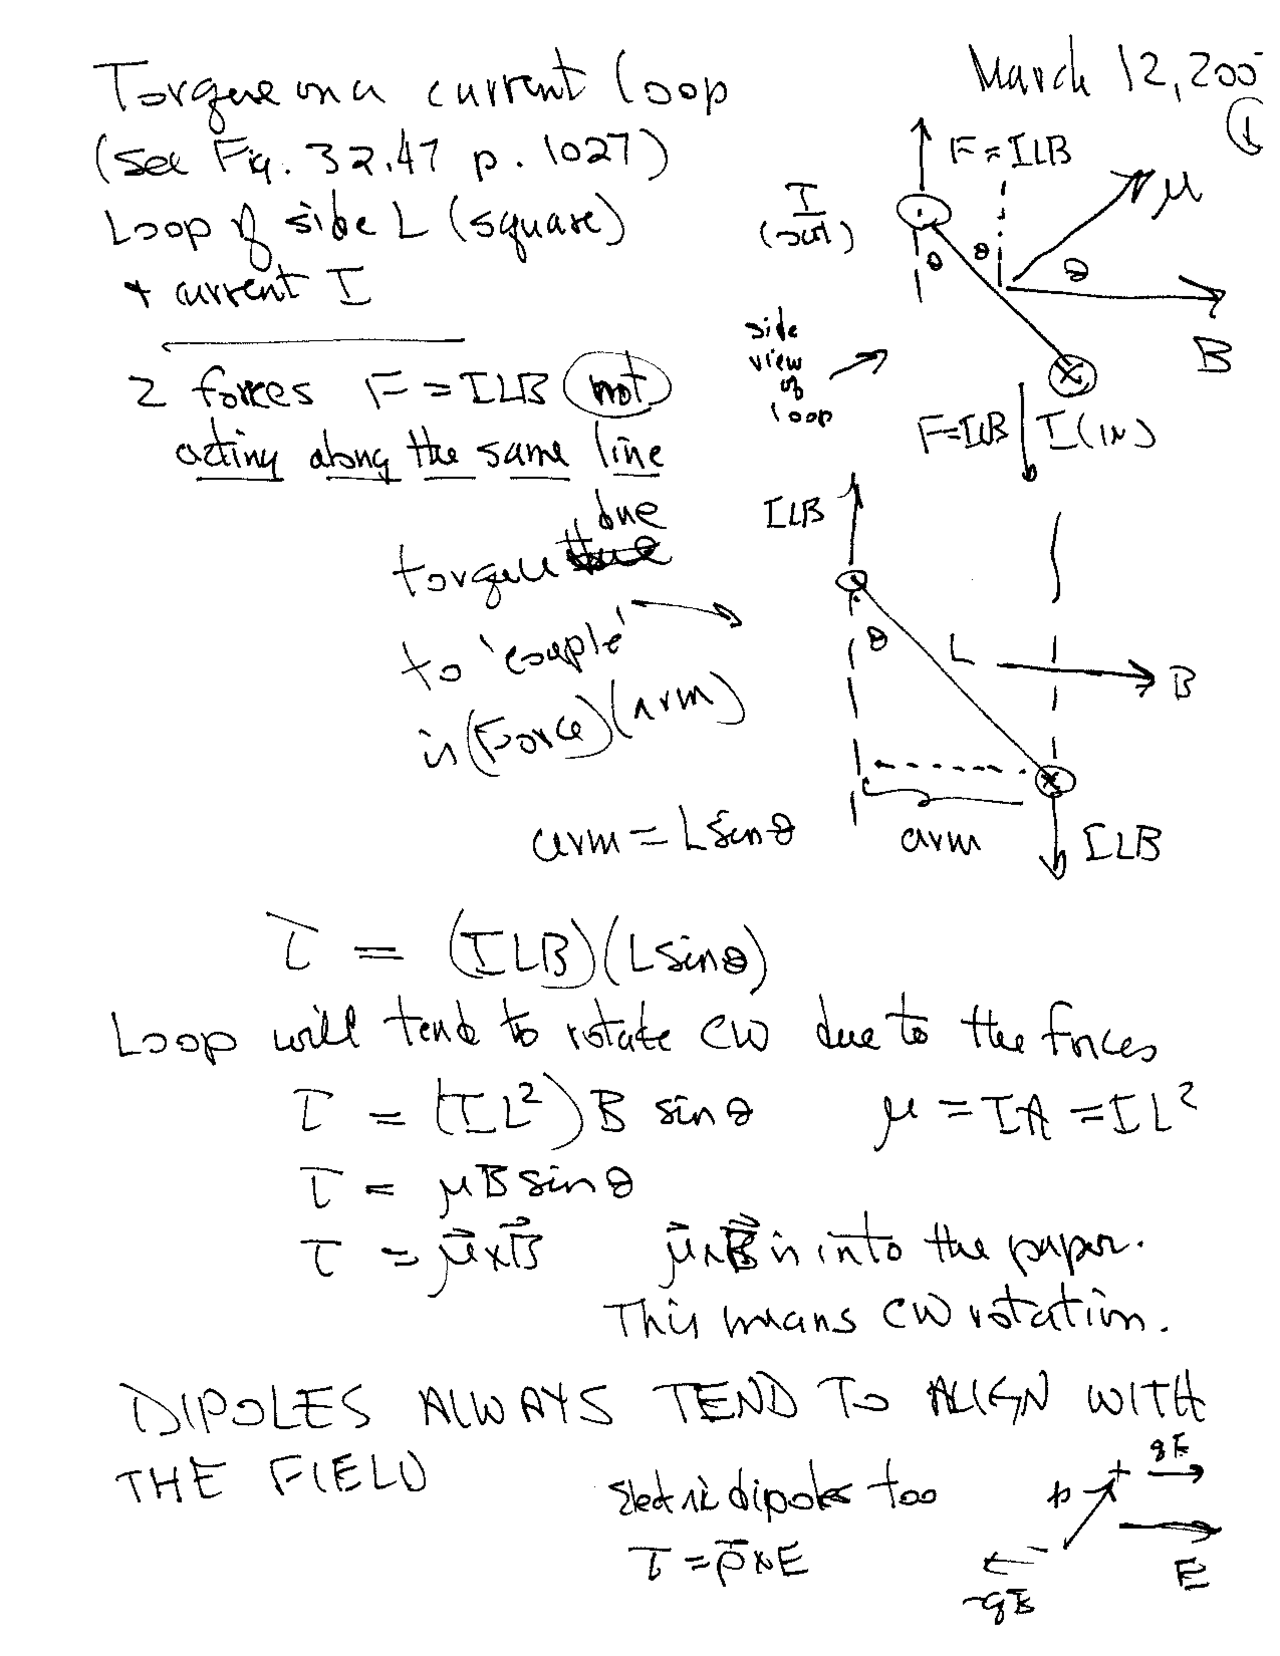 Torque on a current loop
March 12, 200
1
(See Fig. 32.47 p. 1027)
Loop of side L (square)
+ current I
F = ILB
μ
I
(out)
θ
θ
θ
B
side
view
of
loop
F=ILB
I (IN)
2 forces F = ILB not
acting along the same line
due
torque
to 'couple'
is (Force)(arm)
arm = L sin θ
ILB
θ
L
B
arm
ILB
τ = (ILB)(L sin θ)
Loop will tend to rotate CW due to the forces
τ = (IL²) B sin θ μ = IA = IL²
τ = μB sin θ
τ = μ⃗ x B⃗ μ⃗ x B⃗ is into the paper.
This means CW rotation.
DIPOLES ALWAYS TEND TO ALIGN WITH
THE FIELD
Electric dipoles too
τ = p⃗ x E
qE
+
p
-
E
-qE